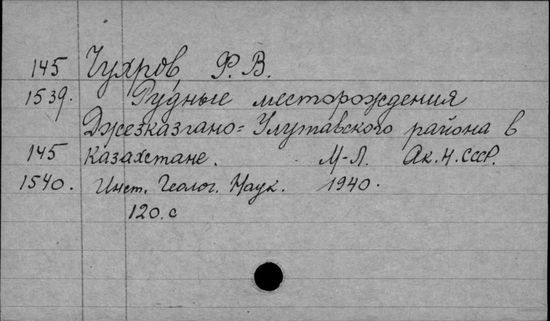 145 Чухров, Ф. В.
1539. Рудные месторождения
Джезказгано=Улутавского района в
145 Казахстане. М-Л. Ак.Н.СССР.
1540. Инст. Геолог. Наук. 1940.
120.с